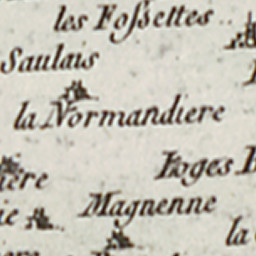 les Fossettes
Saulais
la Normandiere
Loges
iere
Magnenne
ie
la